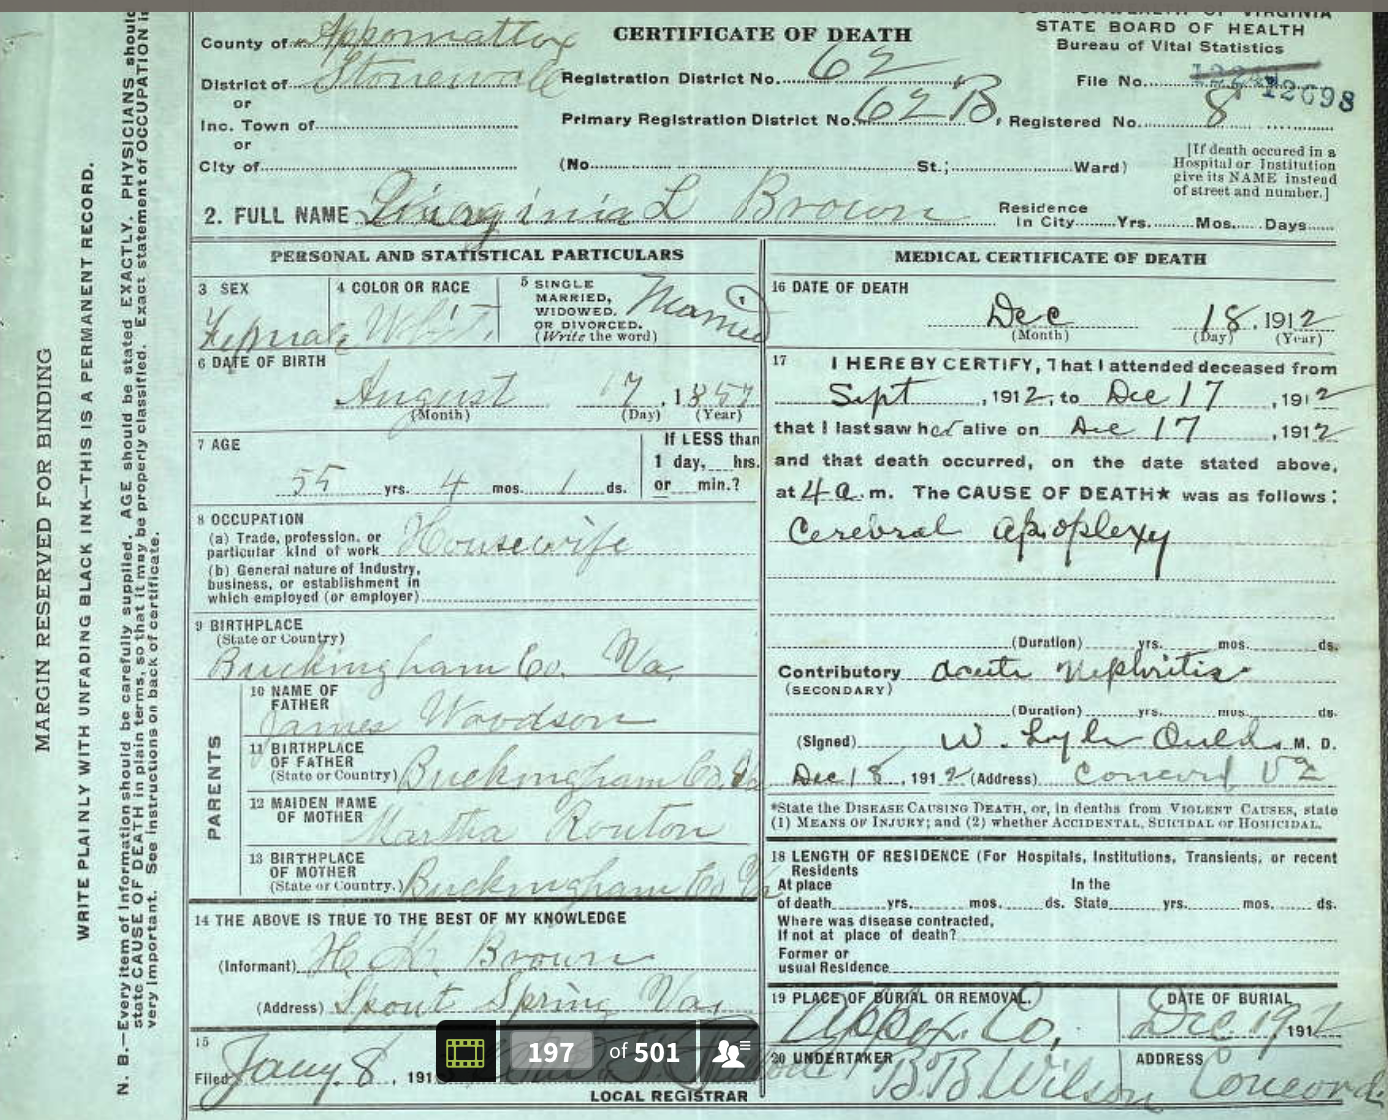 COMMONWEALTH OF VIRGINIA
County of Appomattox
CERTIFICATE OF DEATH
STATE BOARD OF HEALTH
Bureau of Vital Statistics
District of Stonewall
Registration District No. 62
File No. 12698
or
Inc. Town of
Primary Registration District No. 62 B, Registered No. 8
or
City of (No. St.; Ward)
[If death occured in a
Hospital or Institution
give its NAME instead
of street and number.]
2. FULL NAME Virginia L Brown
Residence
In City Yrs. Mos. Days
PERSONAL AND STATISTICAL PARTICULARS
3 SEX
Female
4 COLOR OR RACE
White
5 SINGLE
MARRIED,
WIDOWED.
OR DIVORCED.
(Write the word)
Married
6 DATE OF BIRTH
August 17, 1857
(Month) (Day) (Year)
7 AGE
55 yrs. 4 mos. 1 ds.
If LESS than
1 day, hrs.
or min.?
8 OCCUPATION
(a) Trade, profession, or
particular kind of work Housewife
(b) General nature of Industry,
business, or establishment in
which employed (or employer)
9 BIRTHPLACE
(State or Country)
Buckingham Co. Va.
PARENTS
10 NAME OF
FATHER
James Woodson
11 BIRTHPLACE
OF FATHER
(State or Country) Buckingham Co. Va
12 MAIDEN NAME
OF MOTHER
Martha Routon
13 BIRTHPLACE
OF MOTHER
(State or Country.) Buckingham Co Va
14 THE ABOVE IS TRUE TO THE BEST OF MY KNOWLEDGE
(Informant) Brown
(Address) Spout Spring Va,
15
Filed Jany 8, 191
LOCAL REGISTRAR
MEDICAL CERTIFICATE OF DEATH
16 DATE OF DEATH
Dec 18, 1912
(Month) (Day) (Year)
17 I HEREBY CERTIFY, That I attended deceased from
Sept, 1912, to Dec 17, 1912
that I last saw her alive on Dec 17, 1912
and that death occurred, on the date stated above,
at 4 a.m. The CAUSE OF DEATH★ was as follows:
Cerebral apoplexy
(Duration) yrs. mos. ds.
Contributory acute Nephritis
(SECONDARY)
(Duration) yrs. mos. ds.
(Signed) W. M. D.
Dec 18, 1912 (Address) Concord Va
*State the DISEASE CAUSING DEATH, or, in deaths from VIOLENT CAUSES, state
(1) MEANS OF INJURY; and (2) whether ACCIDENTAL, SUICIDAL or HOMICIDAL.
18 LENGTH OF RESIDENCE (For Hospitals, Institutions, Transients, or recent
Residents
At place In the
of death yrs. mos. ds. State yrs. mos. ds.
Where was disease contracted,
If not at place of death?
Former or
usual Residence
19 PLACE OF BURIAL OR REMOVAL.
Appox. Co,
DATE OF BURIAL
Dec 19 1912
20 UNDERTAKER
B.B Wilson
ADDRESS
Concord
MARGIN RESERVED FOR BINDING
WRITE PLAINLY WITH UNFADING BLACK INK—THIS IS A PERMANENT RECORD.
N. B.—Every item of information should be carefully supplied. AGE should be stated EXACTLY. PHYSICIANS should
state CAUSE OF DEATH in plain terms, so that it may be properly classified. Exact statement of OCCUPATION is
very important. See instructions on back of certificate.
197 of 501